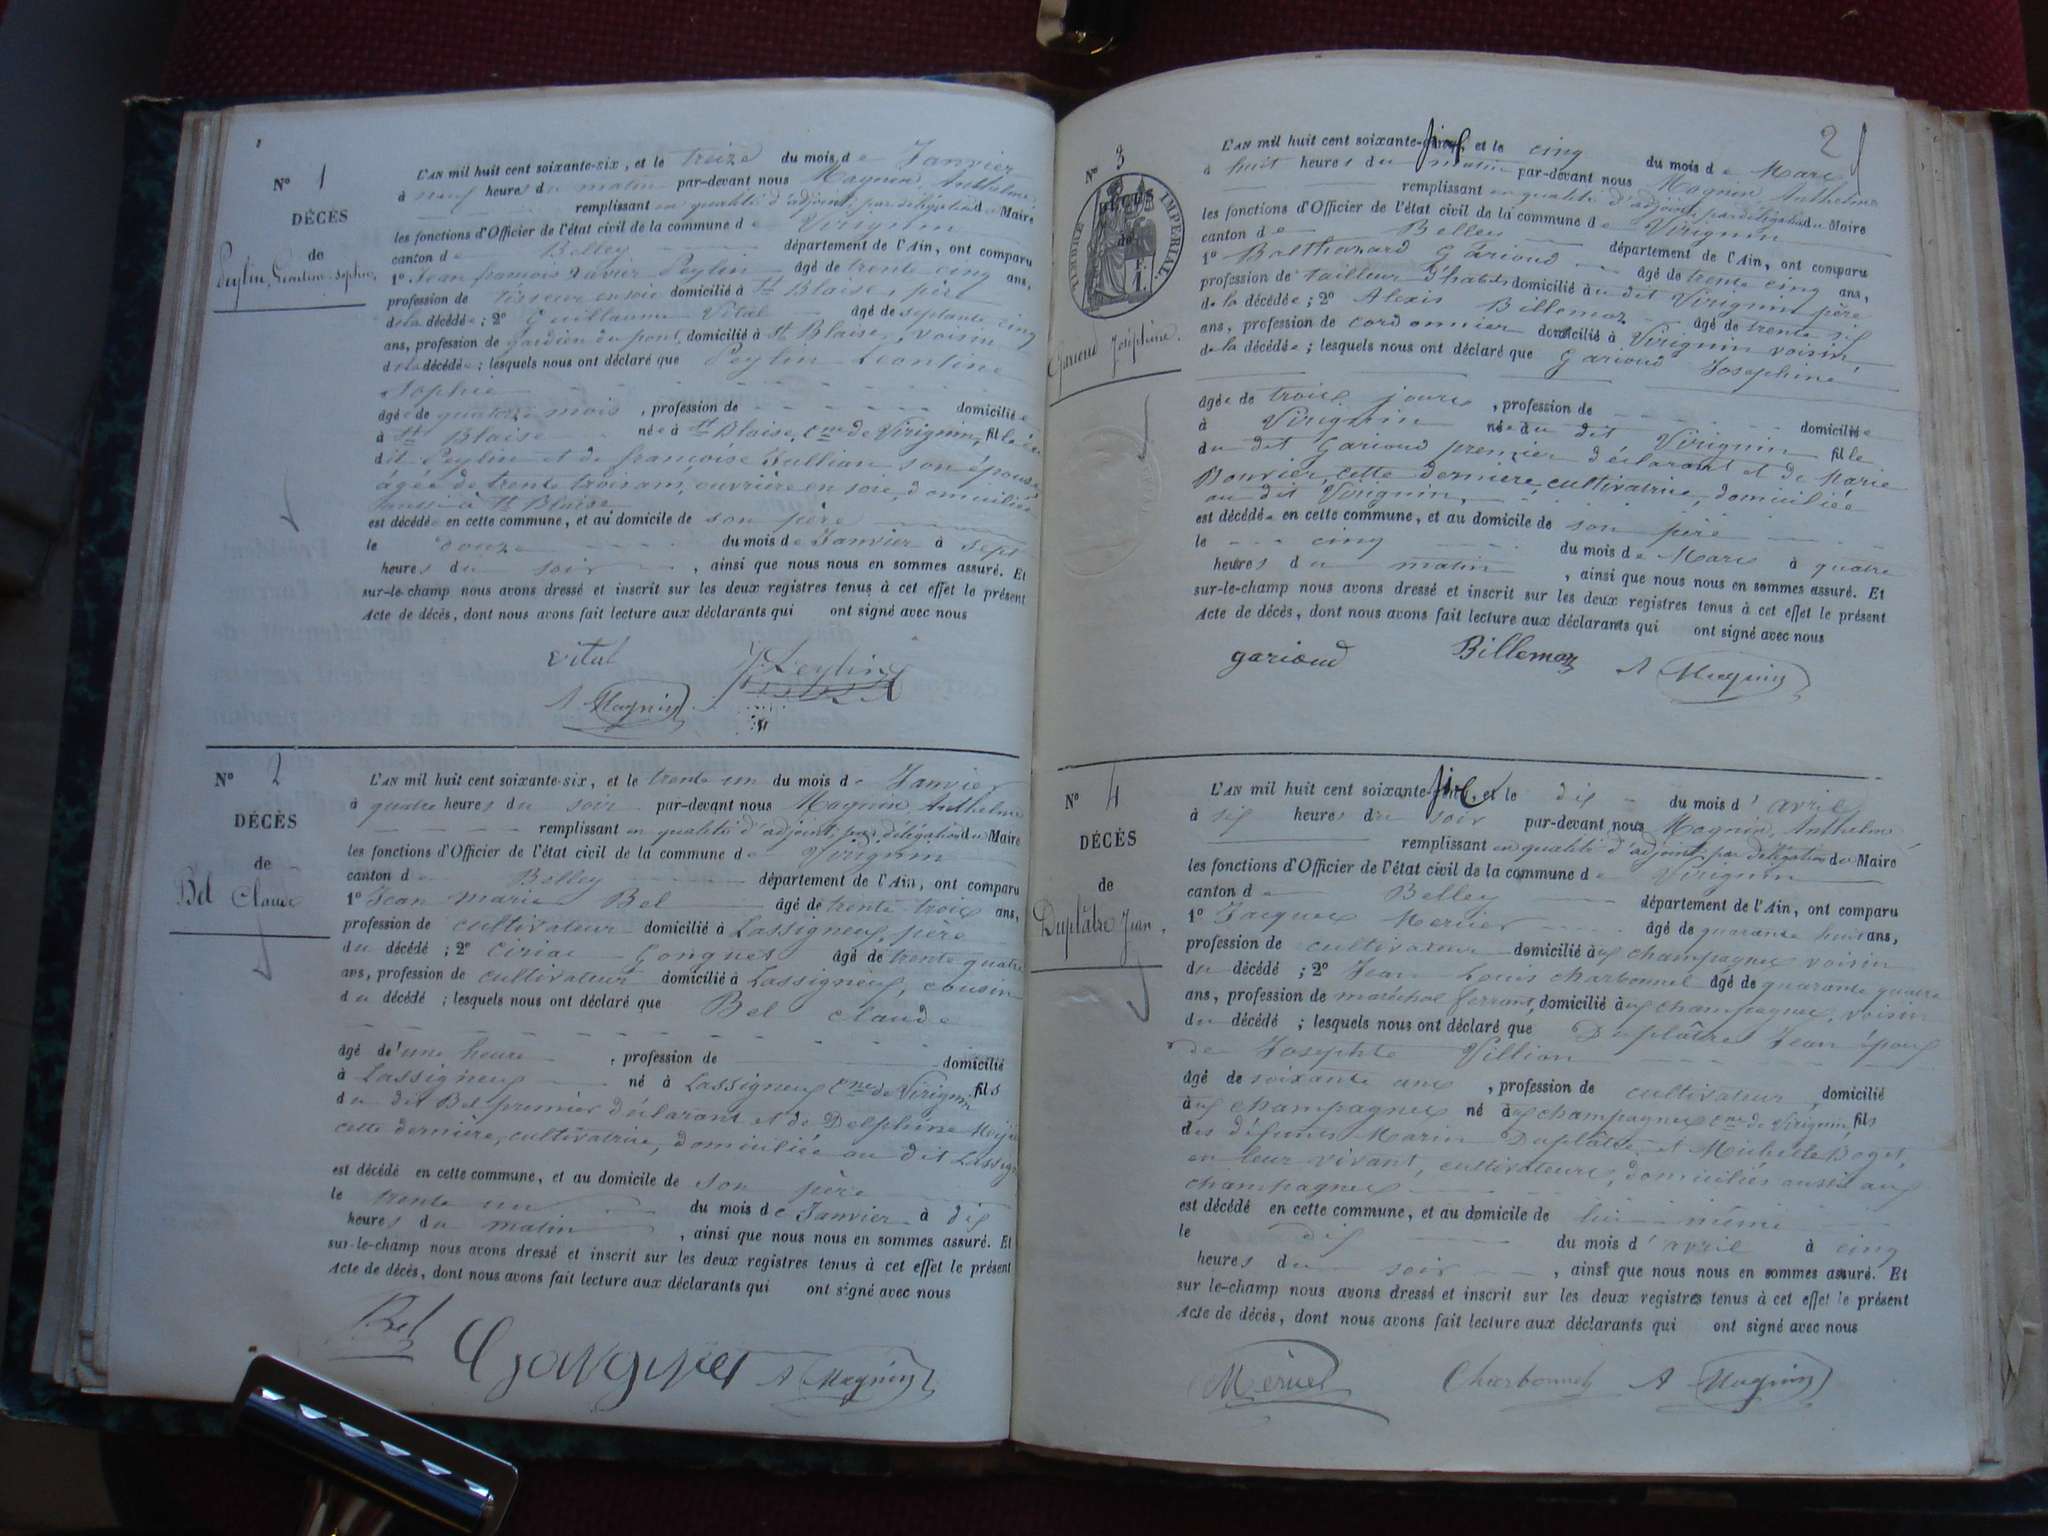 N° 1
DÉCÈS
de
Peylin, Léontine Sophie,
L'AN mil huit cent soixante-six, et le treize du mois de Janvier
à neuf heures du matin par-devant nous Magnin, Anthelme,
remplissant en qualité d'adjoint, par délégation du Maire
les fonctions d'Officier de l'état civil de la commune de Virignin
canton de Belley département de l'Ain, ont comparu
1° Jean françois Xavier Peylin âgé de trente cinq ans,
profession de tisseur en soie domicilié à St Blaise, père
de la décédée; 2° Guillaume Vital âgé de septante cinq
ans, profession de gardien du pont, domicilié à St Blaise, voisin
de la décédée; lesquels nous ont déclaré que Peylin Léontine
Sophie
âgée de quatorze mois, profession de domiciliée
à St Blaise née à St Blaise, Cne de Virignin, fille du
dit Peylin et de françoise Jullian son épouse
âgée de trente trois ans, ouvrière en soie, domiciliée
aussi à St Blaise
est décédée en cette commune, et au domicile de son père
le douze du mois de Janvier à sept
heures du soir, ainsi que nous nous en sommes assuré. Et
sur-le-champ nous avons dressé et inscrit sur les deux registres tenus à cet effet le présent
Acte de décès, dont nous avons fait lecture aux déclarants qui ont signé avec nous
vital Peylin
A Magnin
N° 2
DÉCÈS
de
Bel Claude
L'AN mil huit cent soixante-six, et le trente un du mois de Janvier
à quatre heures du soir par-devant nous Magnin Anthelme
remplissant en qualité d'adjoint, par délégation du Maire
les fonctions d'Officier de l'état civil de la commune de Virignin
canton de Belley département de l'Ain, ont comparu
1° Jean marie Bel âgé de trente trois ans,
profession de cultivateur domicilié à Lassigneux, père
du décédé; 2° Ciriac Gonguet âgé de trente quatre
ans, profession de cultivateur domicilié à Lassigneux, cousin
du décédé; lesquels nous ont déclaré que Bel claude
âgé d'une heure, profession de domicilié
à Lassigneux né à Lassigneux Cne de Virignin, fils
du dit Bel premier déclarant et de Delphine
cette dernière, cultivatrice, domiciliée au dit
est décédé en cette commune, et au domicile de son père
le trente un du mois de Janvier à dix
heures du matin, ainsi que nous nous en sommes assuré. Et
sur-le-champ nous avons dressé et inscrit sur les deux registres tenus à cet effet le présent
Acte de décès, dont nous avons fait lecture aux déclarants qui ont signé avec nous
Bel A Magnin
2
N° 3
DÉCÈS
de
TIMBRE IMPÉRIAL
Garioud Joséphine.
L'AN mil huit cent soixante-six, et le cinq du mois de Mars
à huit heures du matin par-devant nous Magnin Anthelme
remplissant en qualité d'adjoint, par délégation du Maire
les fonctions d'Officier de l'état civil de la commune de Virignin
canton de Belley département de l'Ain, ont comparu
1° Balthazard Garioud âgé de trente cinq ans,
profession de tailleur d'habits domicilié au dit Virignin père
de la décédée; 2° Alexis Billemaz âgé de trente six
ans, profession de cordonnier domicilié à Virignin voisin,
de la décédée; lesquels nous ont déclaré que Garioud Josephine
âgée de trois jours, profession de domiciliée
à Virignin née au dit Virignin fille
du dit Garioud premier déclarant et de Marie
Bouvier, cette dernière, cultivatrice, domiciliée
au dit Virignin,
est décédée en cette commune, et au domicile de son père
le cinq du mois de Mars à quatre
heures du matin, ainsi que nous nous en sommes assuré. Et
sur-le-champ nous avons dressé et inscrit sur les deux registres tenus à cet effet le présent
Acte de décès, dont nous avons fait lecture aux déclarants qui ont signé avec nous
garioud Billemaz A Magnin
N° 4
DÉCÈS
de
Duplâtre Jean.
L'AN mil huit cent soixante-six, et le dix du mois d'avril
à six heures du soir par-devant nous Magnin, Anthelme
remplissant en qualité d'adjoint, par délégation du Maire
les fonctions d'Officier de l'état civil de la commune de Virignin
canton de Belley département de l'Ain, ont comparu
1° Jacques Mercier âgé de quarante huit ans,
profession de cultivateur domicilié aux champagnes voisin
du décédé; 2° Jean Louis charbonnel âgé de quarante quatre
ans, profession de maréchal ferrant, domicilié aux champagnes, voisin
du décédé; lesquels nous ont déclaré que Duplâtre Jean époux
de Josephte Villian
âgé de soixante ans, profession de cultivateur, domicilié
aux champagnes né aux champagnes Cne de Virignin, fils
des défunts Marin Duplâtre et Michelle Boget,
en leur vivant, cultivateurs, domiciliés aussi aux
champagnes
est décédé en cette commune, et au domicile de lui-même
le dix du mois d'avril à cinq
heures du soir, ainsi que nous nous en sommes assuré. Et
sur le-champ nous avons dressé et inscrit sur les deux registres tenus à cet effet le présent
Acte de décès, dont nous avons fait lecture aux déclarants qui ont signé avec nous
Charbonnel A Magnin